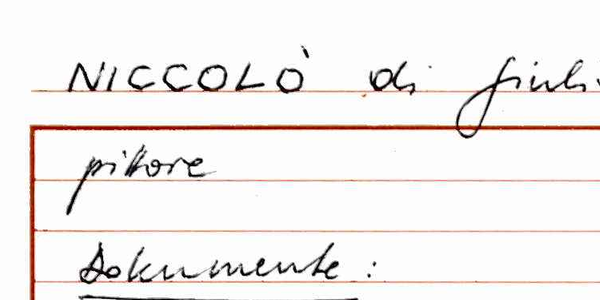 NICCOLÒ di Giuli
pittore
Dokumente: